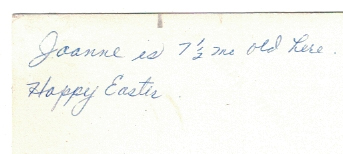 Joanne is 7 ½ mo old here.
Happy Easter